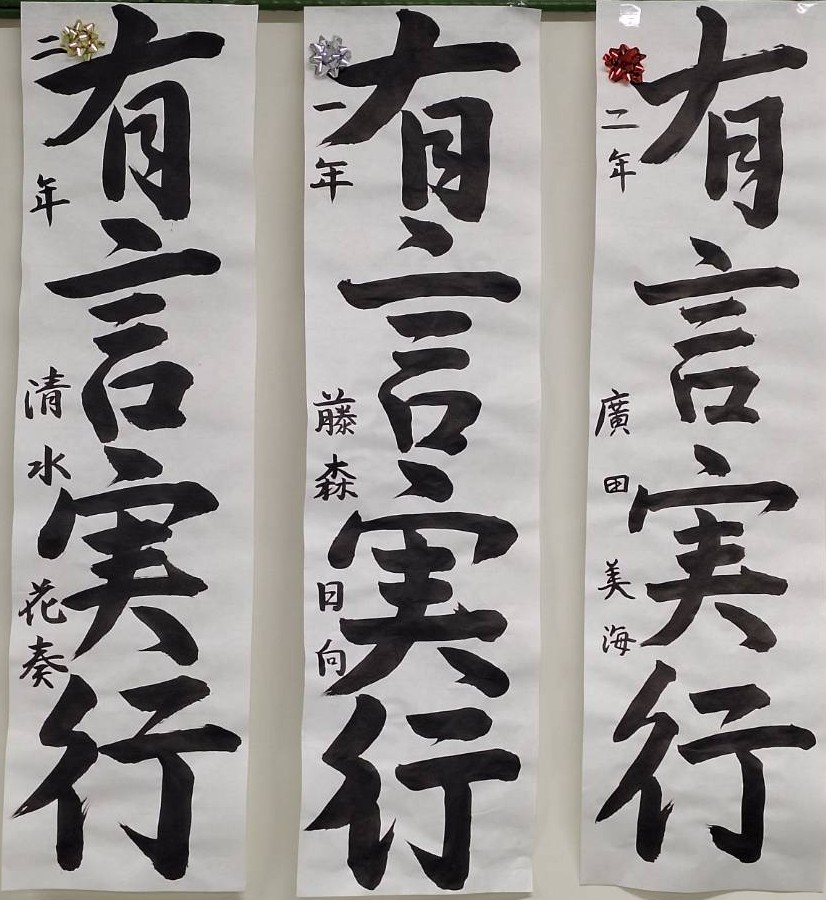 有言実行
二年 廣田美海
有言実行
一年 藤森日向
有言実行
二年 清水花奏